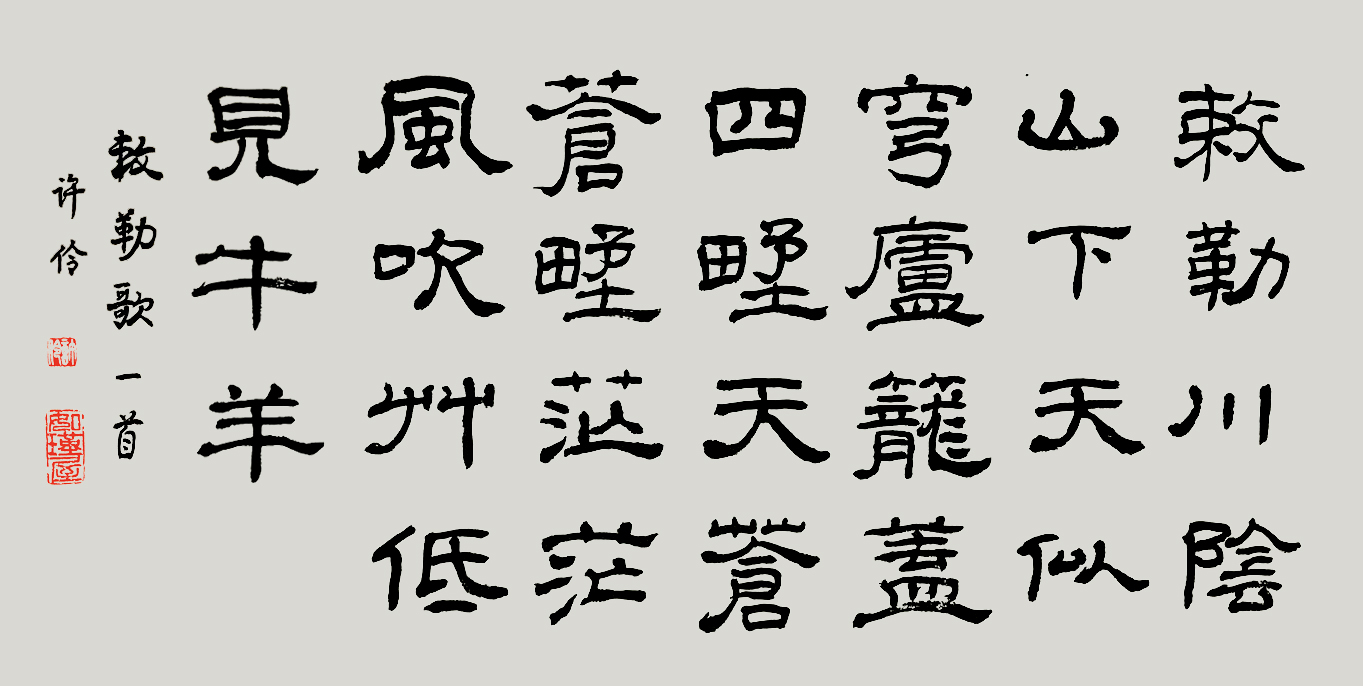 敕勒川陰
山下天似
穹廬籠蓋
四野天蒼
蒼野茫茫
風吹艸低
見牛羊
敕勒歌一首
许伶